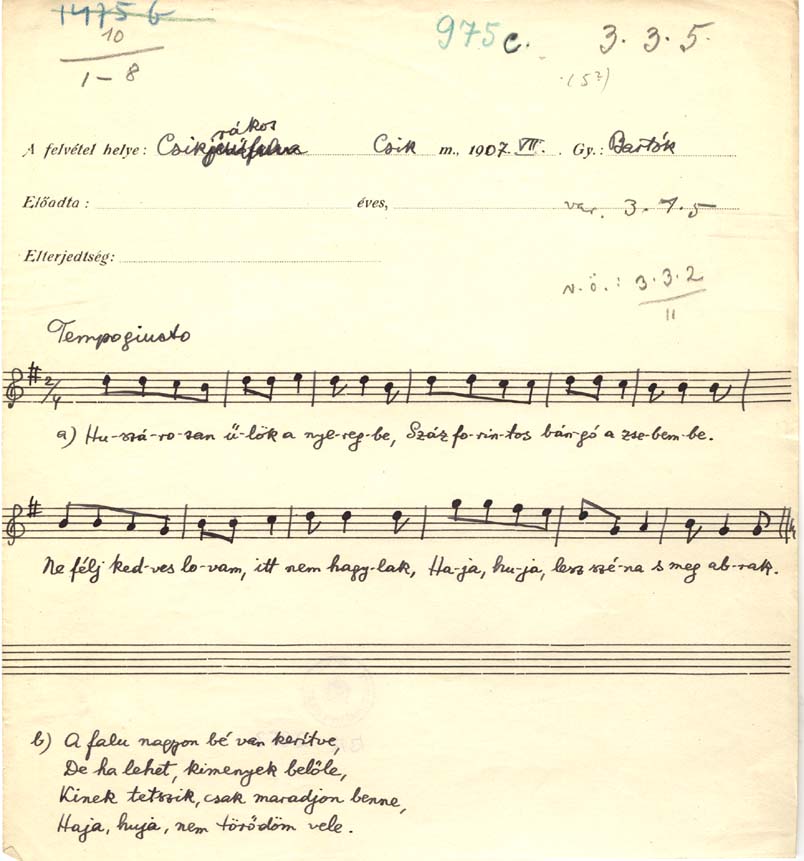 1475 b
10
1-8
975 c.
3. 3. 5.
(5?)
rákos
A felvétel helye: Csik Csik m., 1907. VII. Gy.: Bartók
Előadta: éves, var. 3. 1. 5
Elterjedtség:
v. ö.: 3. 3. 2
11
Tempo giusto
2/4
a) Hu-szá-ro-san ű-lök a nye-reg-be, Száz fo-rin-tos bán-gó a zse-bem-be.
Ne félj ked-ves lo-vam, itt nem hagy-lak, Ha-ja, hu-ja, lesz szé-na s meg ab-rak.
b) A falu nagyon bé van kerítve,
De ha lehet, kimenyek belőle,
Kinek tetszik, csak maradjon benne,
Haja, huja, nem törődöm vele.